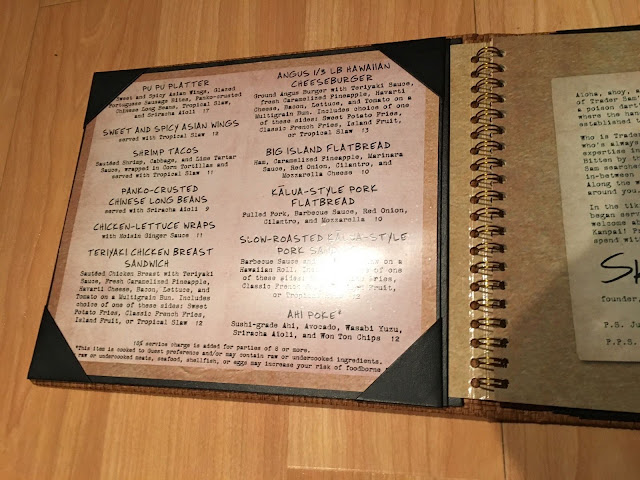 PU PU PLATTER
Sweet and Spicy Asian Wings, Glazed
Portuguese Sausage Bites, Panko-crusted
Chinese Long Beans, Tropical Slaw,
and Sriracha Aioli 17
SWEET AND SPICY ASIAN WINGS
served with Tropical Slaw 12
SHRIMP TACOS
Sautéed Shrimp, Cabbage, and Lime Tartar
Sauce, wrapped in Corn Tortillas and
served with Tropical Slaw 11
PANKO-CRUSTED
CHINESE LONG BEANS
served with Sriracha Aioli 9
CHICKEN-LETTUCE WRAPS
with Hoisin Ginger Sauce 11
TERIYAKI CHICKEN BREAST
SANDWICH
Sautéed Chicken Breast with Teriyaki
Sauce, Fresh Caramelized Pineapple,
Havarti Cheese, Bacon, Lettuce, and
Tomato on a Multigrain Bun. Includes
choice of one of these sides: Sweet
Potato Fries, Classic French Fries,
Island Fruit, or Tropical Slaw 12
ANGUS 1/3 LB HAWAIIAN
CHEESEBURGER
Ground Angus Burger with Teriyaki Sauce,
fresh Caramelized Pineapple, Havarti
Cheese, Bacon, Lettuce, and Tomato on a
Multigrain Bun. Includes choice of one
of these sides: Sweet Potato Fries,
Classic French Fries, Island Fruit,
or Tropical Slaw 13
BIG ISLAND FLATBREAD
Ham, Caramelized Pineapple, Marinara
Sauce, Red Onion, Cilantro, and
Mozzarella Cheese 10
KĀLUA-STYLE PORK
FLATBREAD
Pulled Pork, Barbecue Sauce, Red Onion,
Cilantro, and Mozzarella 10
SLOW-ROASTED KĀLUA-STYLE
PORK
Barbecue Sauce on a
Hawaiian Roll. of one
of these sides: Fries,
Classic French Fruit,
or Tropical 12
AHI POKE*
Sushi-grade Ahi, Avocado, Wasabi Yuzu,
Sriracha Aioli, and Won Ton Chips 12
18% service charge is added for parties of 8 or more.
*This item is cooked to Guest preference and/or may contain raw or undercooked ingredients.
raw or undercooked meats, seafood, shellfish, or eggs may increase your risk of foodborne
Aloha, ahoy, a
of Trader Sam
a poison dart
where the
established t
Who is Trader
who's always
expertise in
Bitten by t
Sam searched
in-between
Along the
around you.
In the tiki
began serv
welcome ab
Kanpai! P
spend wit
founder,
P.S. Ju
P.P.S.